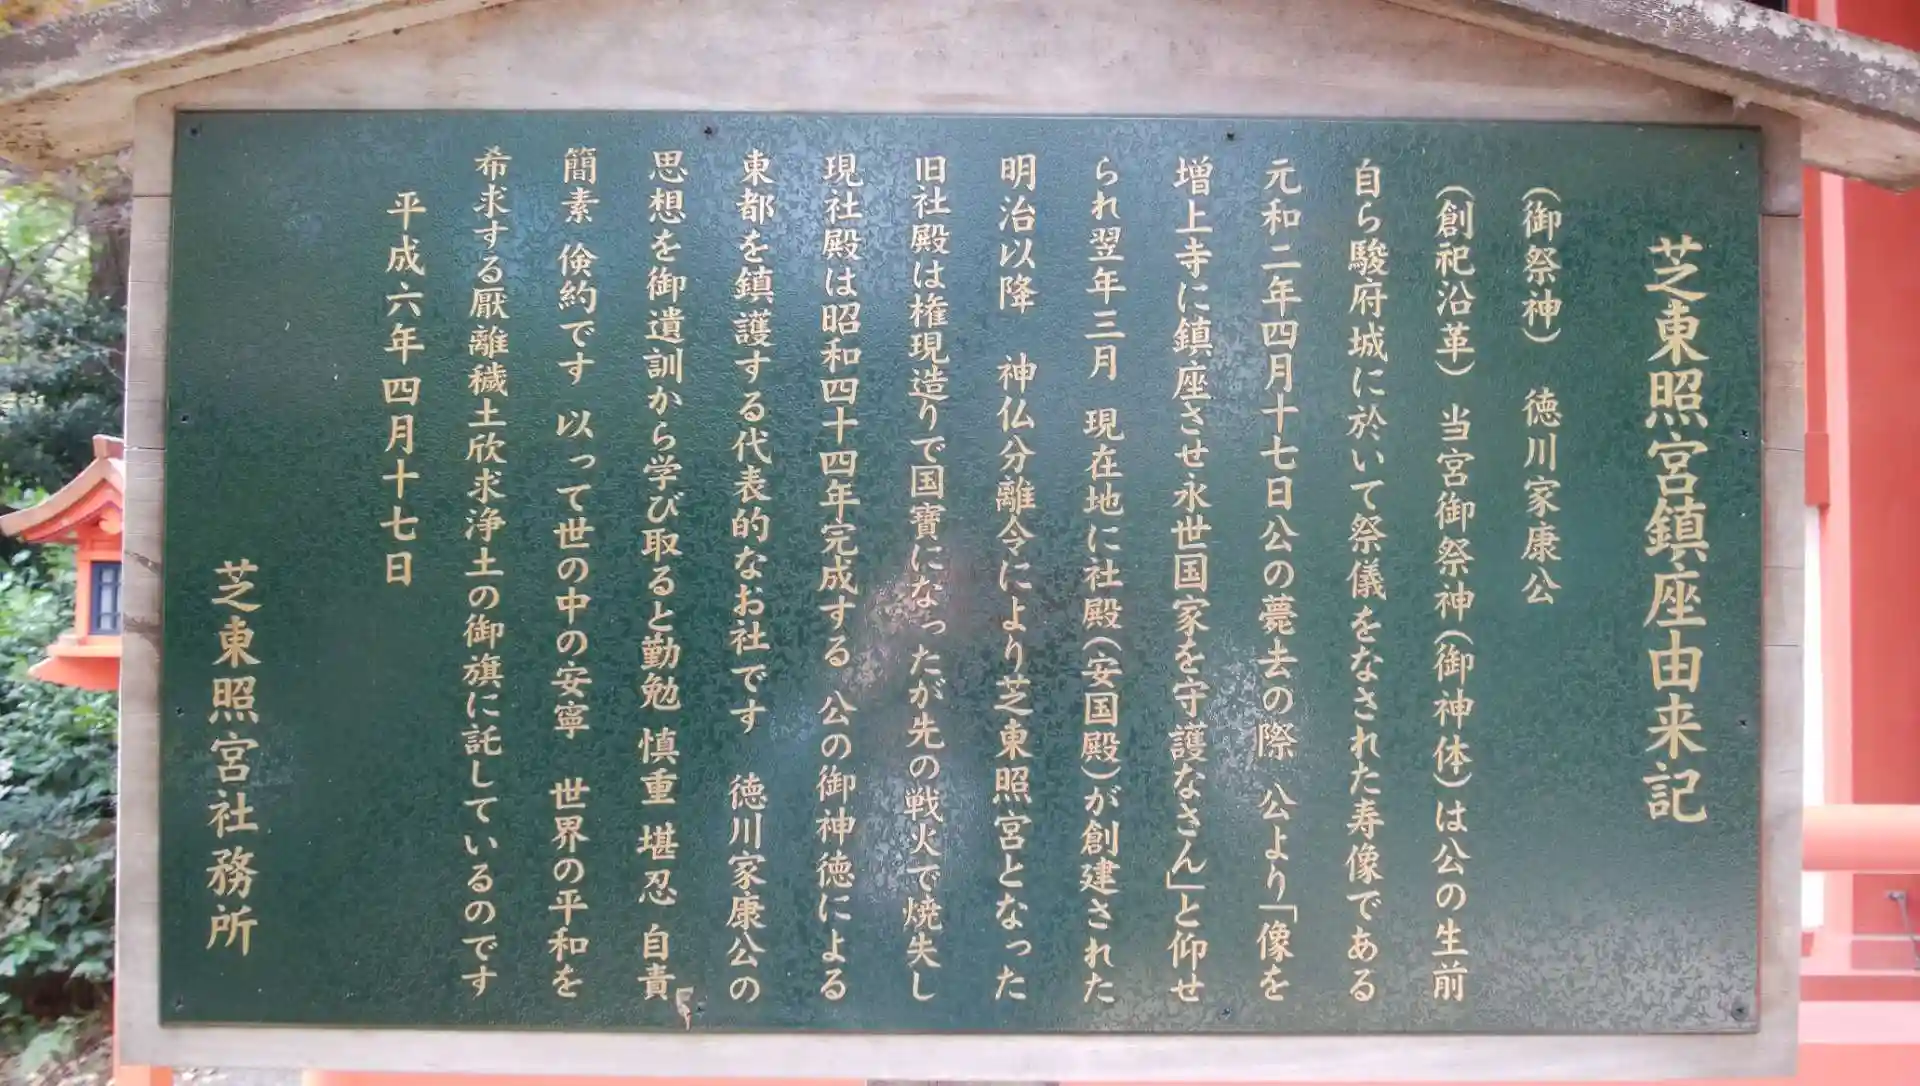 芝東照宮鎮座由来記
(御祭神) 徳川家康公
(創祀沿革) 当宮御祭神(御神体)は公の生前
自ら駿府城に於いて祭儀をなされた寿像である
元和二年四月十七日公の薨去の際 公より「像を
増上寺に鎮座させ永世国家を守護なさん」と仰せ
られ翌年三月 現在地に社殿(安国殿)が創建された
明治以降 神仏分離令により芝東照宮となった
旧社殿は権現造りで国寶になったが先の戦火で焼失し
現社殿は昭和四十四年完成する 公の御神徳による
東都を鎮護する代表的なお社です 徳川家康公の
思想を御遺訓から学び取ると勤勉 慎重 堪忍 自責
簡素 倹約です 以って世の中の安寧 世界の平和を
希求する厭離穢土欣求浄土の御旗に託しているのです
平成六年四月十七日
芝東照宮社務所